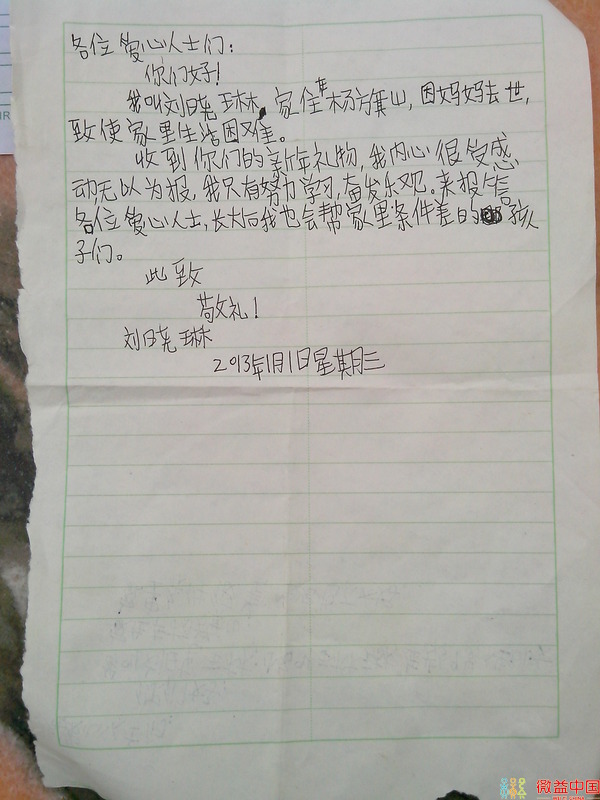 各位爱心人士们：
你们好！
我叫刘晓琳，家住在杨旗山，因妈妈去世，
致使家里生活困难。
收到你们的新年礼物，我内心很受感
动，无以为报，我只有努力学习，奋发乐观。来报答
各位爱心人士，长大后我也会帮家里条件差的孩
子们。
此致
敬礼！
刘晓琳
2013年1月1日星期三
微益中国